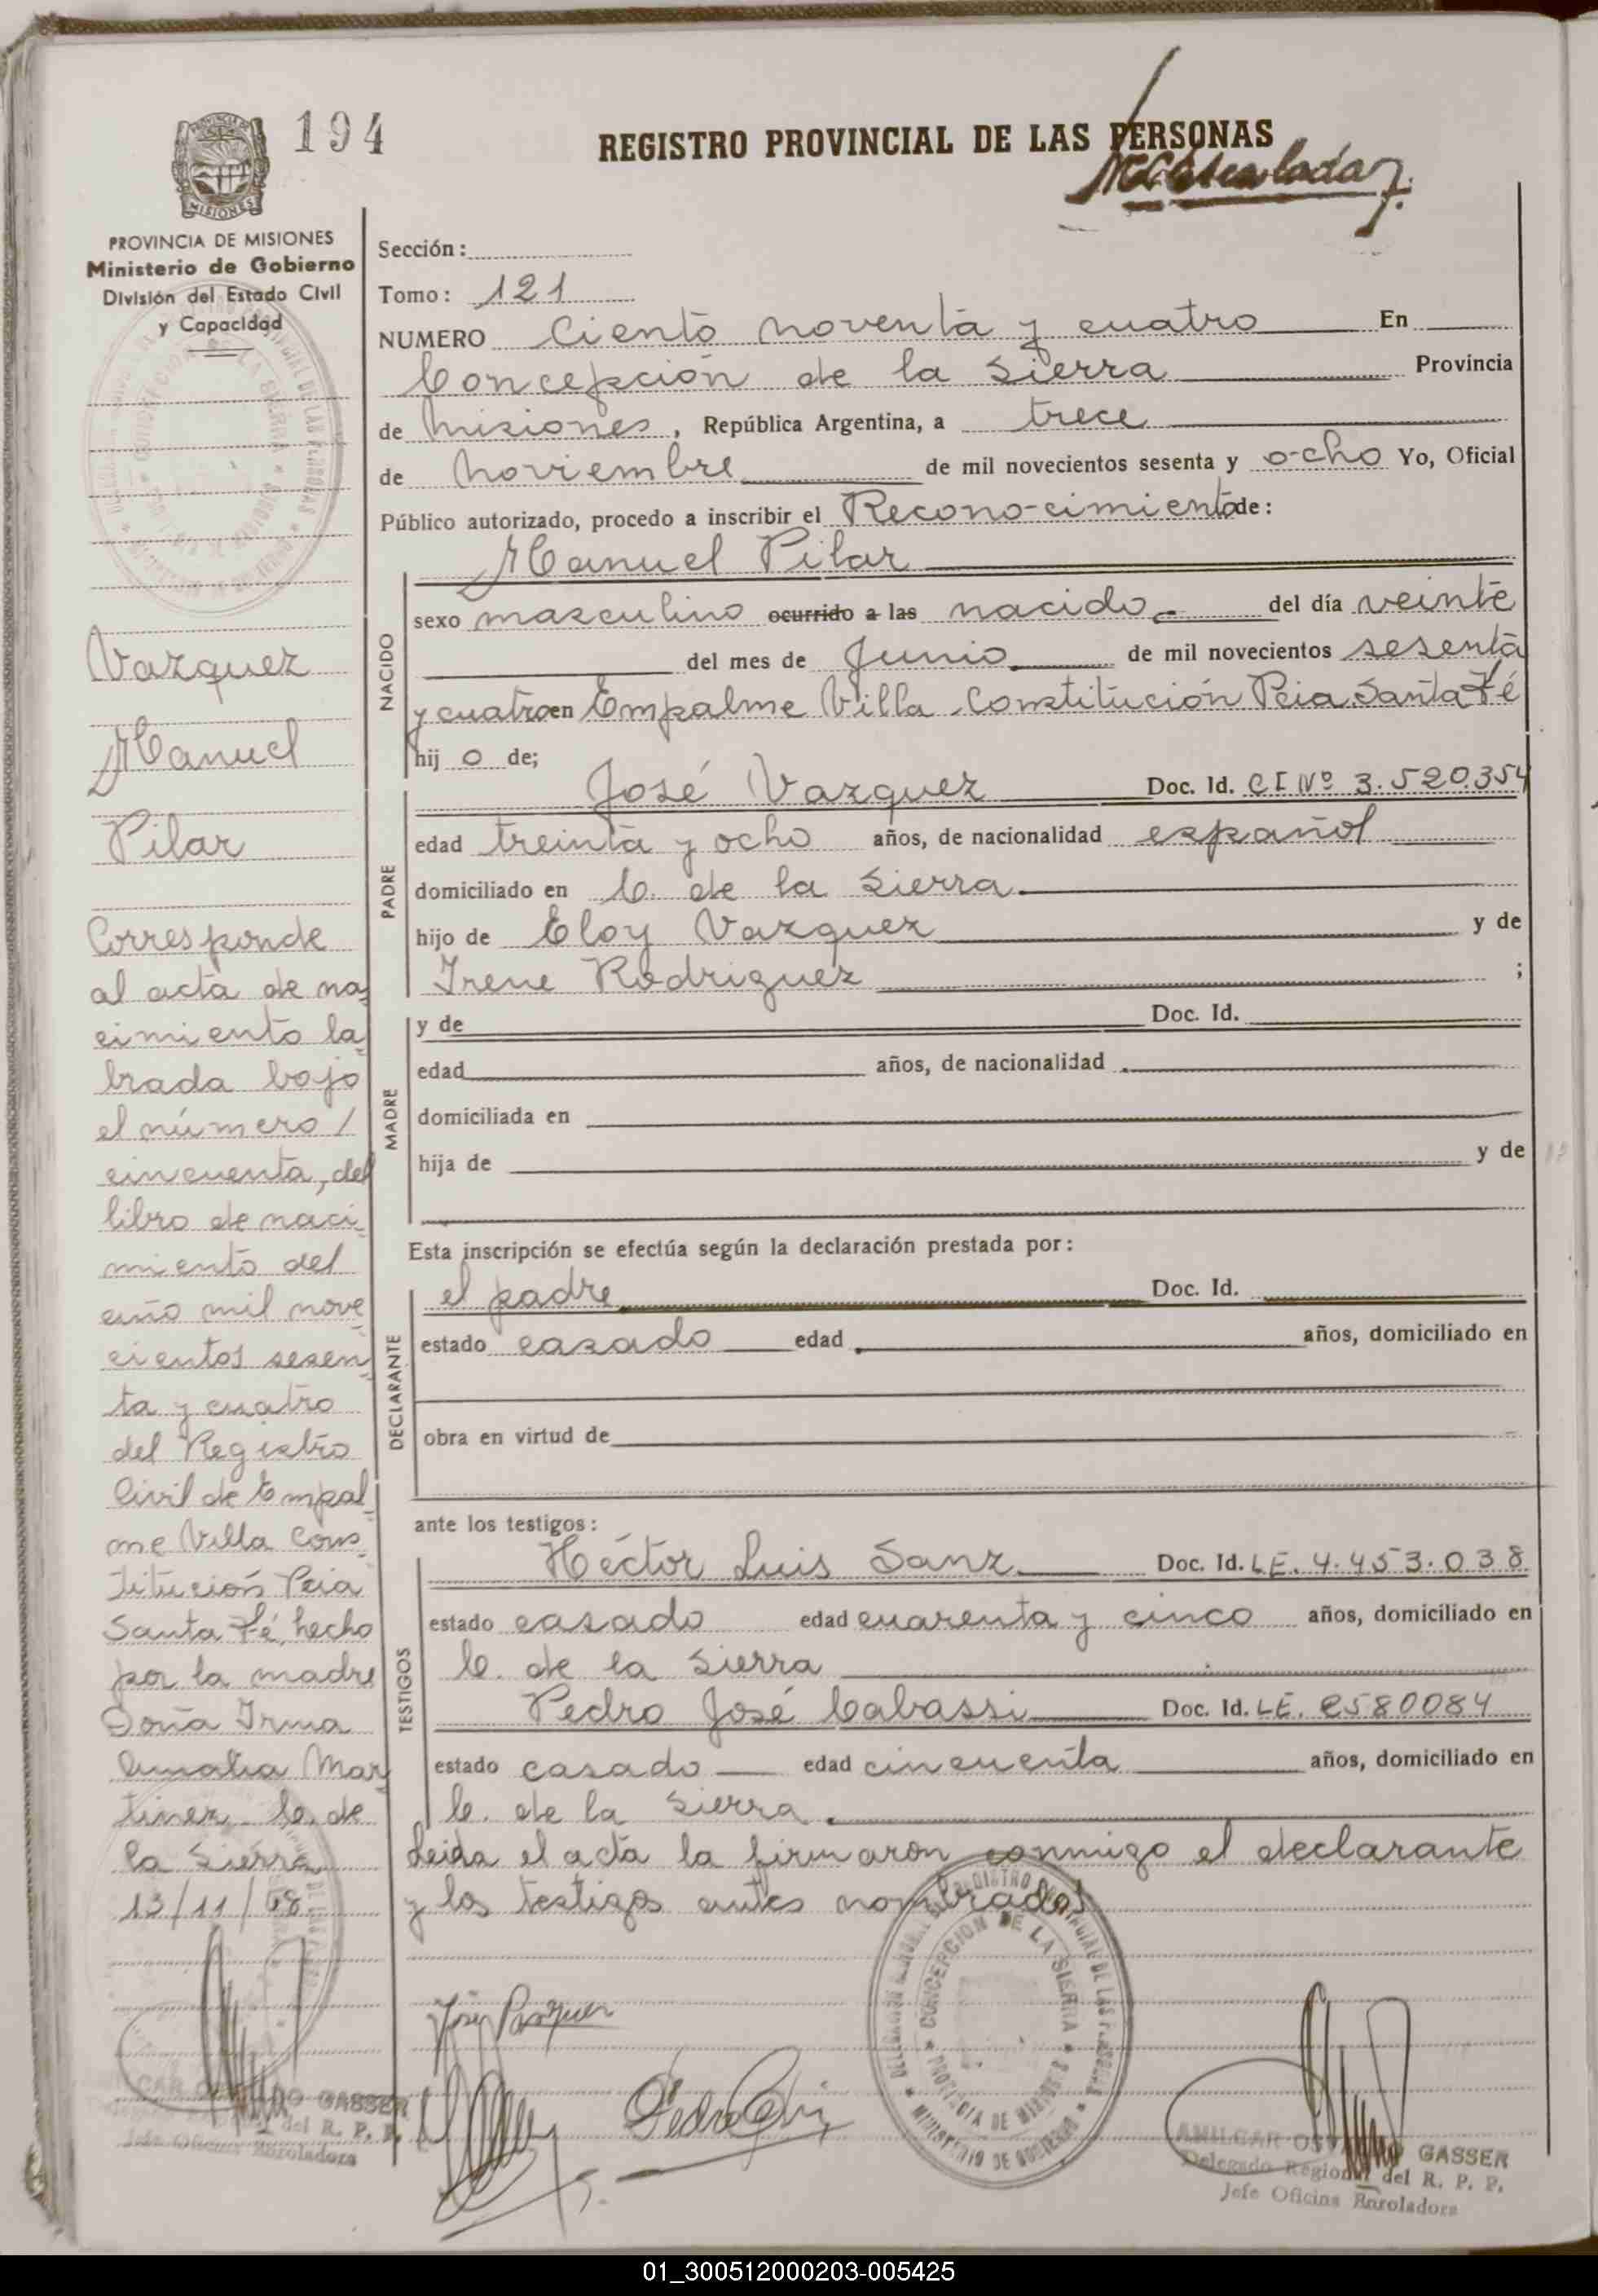 194
REGISTRO PROVINCIAL DE LAS PERSONAS
PROVINCIA DE MISIONES
Ministerio de Gobierno
División del Estado Civil
y Capacidad
Vazquez
Manuel
Pilar
Corresponde
al acta de na
cimiento la
brada bajo
el número /
cincuenta, del
libro de naci
miento del
año mil nove
cientos sesen
ta y cuatro
del Registro
Civil de Empal
me Villa Cons
titución Pcia
Santa Fé, hecho
por la madre
Doña Irma
Amalia Mar
tinez. C. de
la Sierra
13/11/68.
Sección:
Tomo: 121
NUMERO Ciento noventa y cuatro En
Concepción de la Sierra Provincia
de Misiones, República Argentina, a trece
de Noviembre de mil novecientos sesenta y ocho Yo, Oficial
Público autorizado, procedo a inscribir el Reconocimiento de:
Manuel Pilar
NACIDO
sexo masculino ocurrido a las nacido del día veinte
del mes de Junio de mil novecientos sesenta
y cuatro en Empalme Villa Constitución Pcia Santa Fé
hij o de;
PADRE
José Vazquez Doc. Id. CI Nº 3.520354
edad treinta y ocho años, de nacionalidad español
domiciliado en C. de la Sierra
hijo de Eloy Vazquez y de
Irene Rodriguez ;
MADRE
y de Doc. Id.
edad años, de nacionalidad
domiciliada en
hija de y de
Esta inscripción se efectúa según la declaración prestada por:
DECLARANTE
el padre Doc. Id.
estado casado edad años, domiciliado en
obra en virtud de
ante los testigos:
TESTIGOS
Héctor Luis Sanz Doc. Id. LE. 4.453.038
estado casado edad cuarenta y cinco años, domiciliado en
C. de la Sierra
Pedro José Cabassi Doc. Id. LE. 2580084
estado casado edad cincuenta años, domiciliado en
C. de la Sierra
Leida el acta la firmaron conmigo el declarante
y los testigos antes nombrados
CONCEPCION DE LA SIERRA
PROVINCIA DE MISIONES
MINISTERIO DE GOBIERNO
GASSER
del R. P. P.
Jefe Oficina Enroladora
AMILCAR GASSER
Delegado Regional del R. P. P.
Jefe Oficina Enroladora
01_300512000203-005425